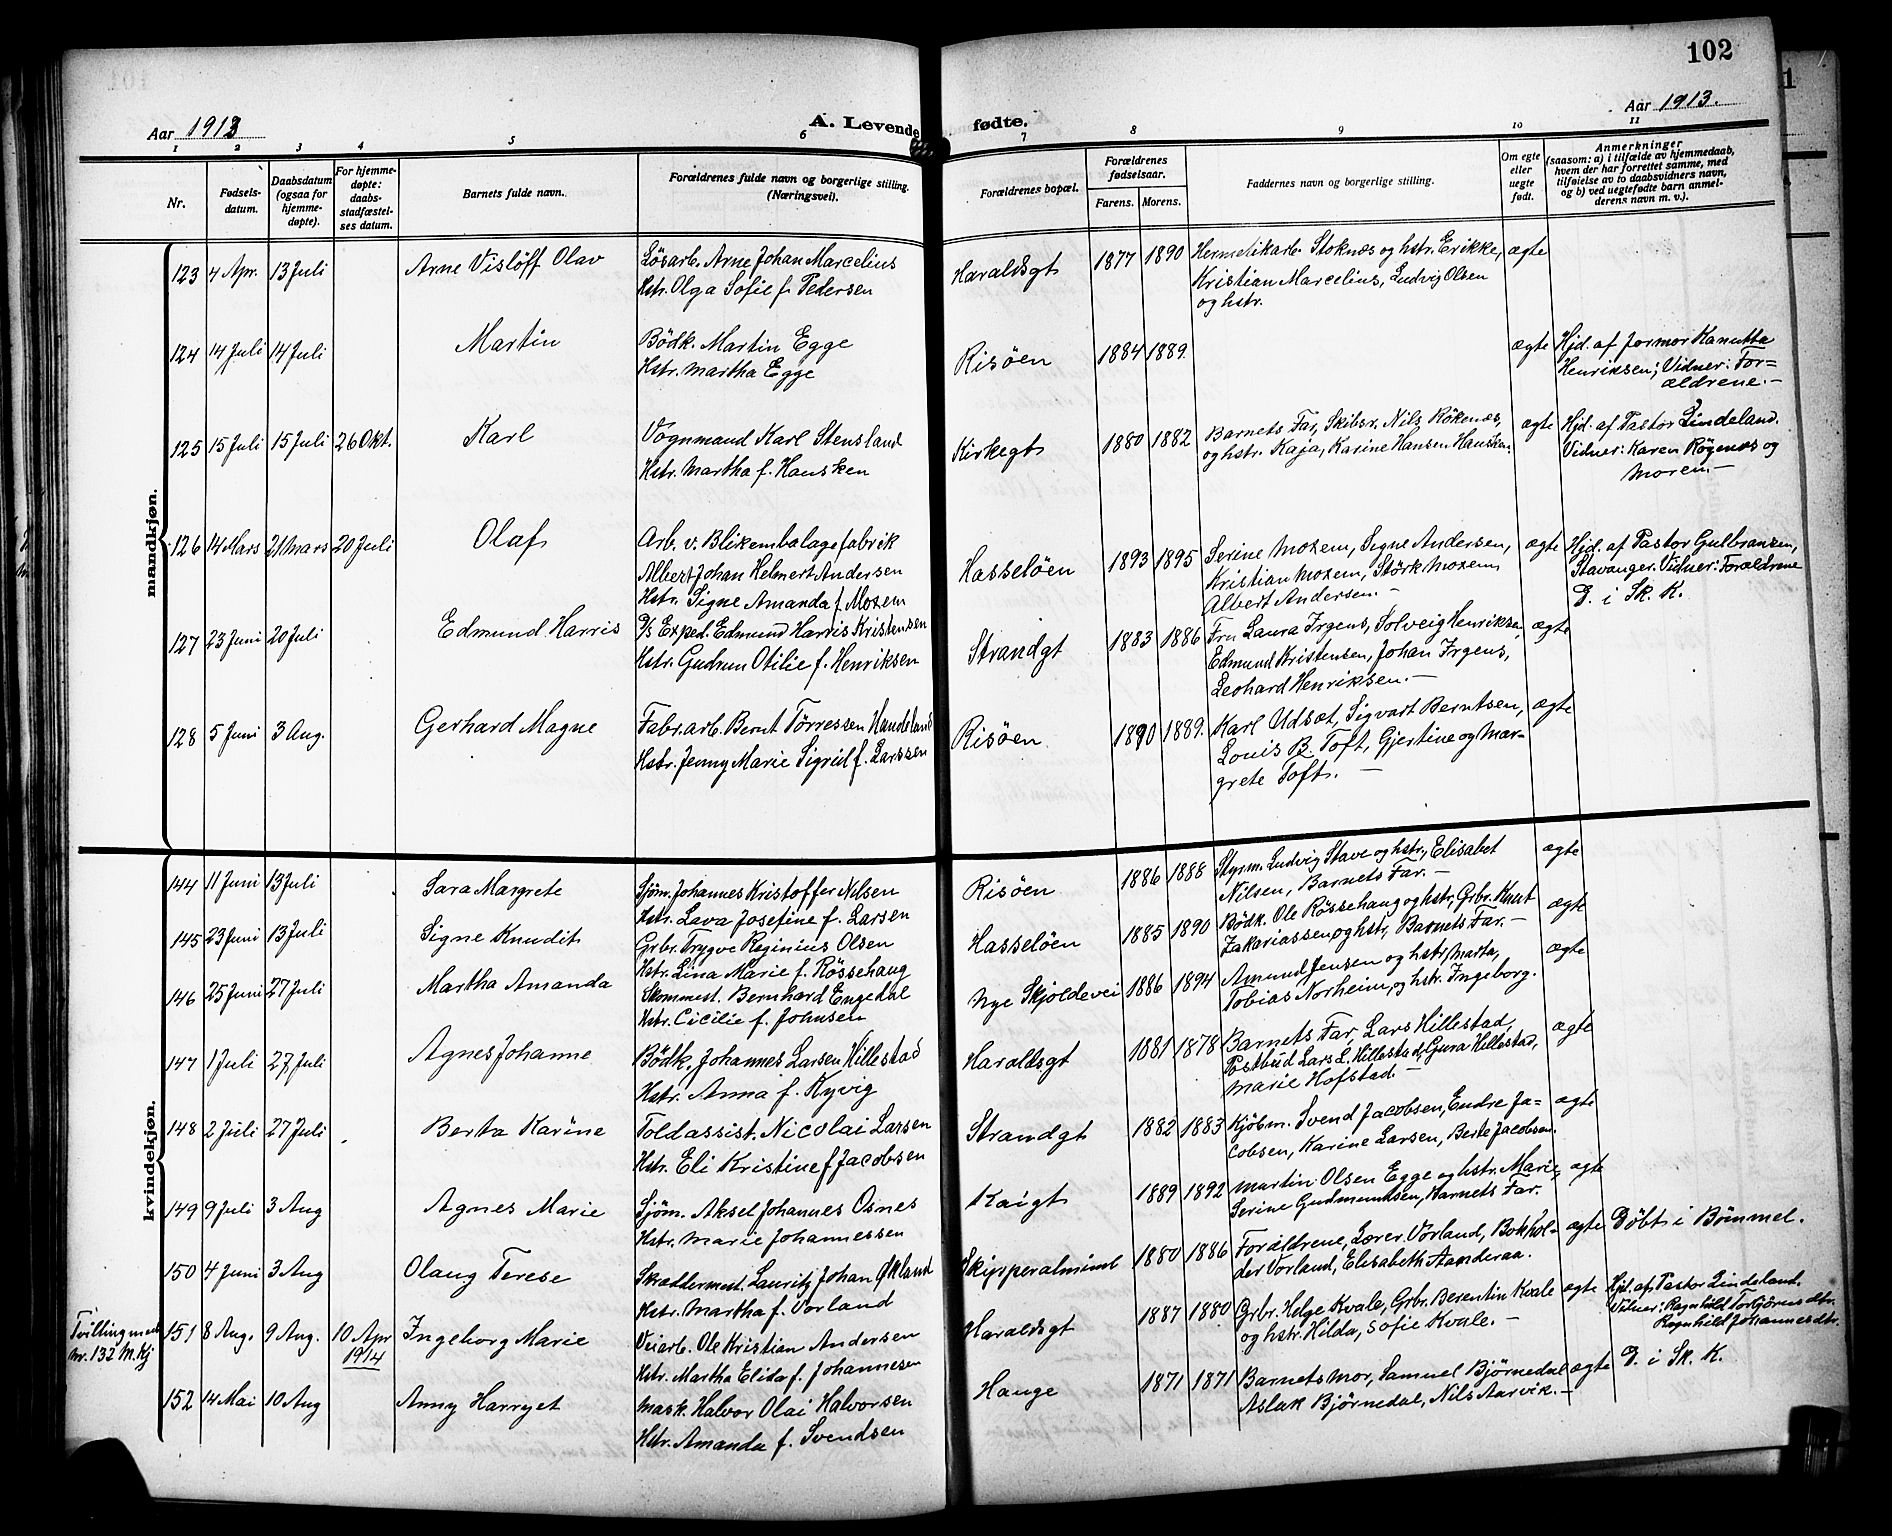 102
Aar 1913
A. Levende fødte.
Aar 1913.
1 2 3 4 5 6 7 8 9 10 11
Nr.
Fødsels-
datum.
Daabsdatum
(ogsaa for
hjemme-
døpte).
For hjemme-
døpte:
daabs-
stadfæstel-
ses datum.
Barnets fulde navn.
Forældrenes fulde navn og borgerlige stilling.
(Næringsvei).
Forældrenes bopæl.
Forældrenes
fødselsaar.
Farens. Morens.
Faddernes navn og borgerlige stilling.
Om egte
eller
uegte
født.
Anmerkninger
(saasom: a) i tilfælde av hjemmedaab,
hvem der har forrettet samme, med
tilføielse av to daabsvidners navn,
og b) ved uegtefødte barn anmel-
derens navn m. v.).
mandkjøn.
123 4 Apr. 13 Juli Arne Vislöff Olav
Løsarb. Arne Johan Marcelius
Hstr. Olga Sofie f. Pedersen
Haraldsgt 1877 1890
Hermetikarb. Stoknes og hstr. Erikke,
Kristian Marcelius, Ludvig Olsen
og hstr.
ægte
124 14 Juli 14 Juli Martin
Bödk. Martin Egge
Hstr. Martha Egge
Risöen 1884 1889.
ægte
Hjd. af farmor Kanutta
Henriksen; Vidner: For-
ældrene.-
125 15 Juli 15 Juli 26 Okt. Karl
Vognmand Karl Stensland
Hstr. Martha f. Hansken
Kirkegt 1880 1882
Barnets Far, Skibsr. Nils Rökenæs,
og hstr. Kaja, Karine Hansen Hansken.
ægte
Hjd. af Pastor Lindeland.
Vidner: Karen Røgenæs og
Moren.-
126 14 Mars 21 Mars 20 Juli Olaf
Arb. v. Blikembalagefabrik
Albert Johan Helmert Andersen
Hstr. Signe Amanda f. Mozem
Hasseløen 1893 1895
Serine Mozem, Signe Andersen,
Kristian Mozem, Størk Mozem,
Albert Andersen.-
ægte
Hjd. af Pastor Gulbransen,
Stavanger. Vidner: Forældrene
D. i Sk. K.
127 23 Juni 20 Juli Edmund Harris
D/s Exped. Edmund Harris Kristensen
Hstr. Gudrun Otilie f. Henriksen
Strandgt 1883 1886
Fru Laura Irgens, Solveig Henriksen,
Edmund Kristensen, Johan Irgens,
Leohard Henriksen.-
ægte
128 5 Juni 3 Aug. Gerhard Magne
Fabr.arb. Bernt Tørressen Handeland
Hstr. Jenny Marie Sigrid f. Larssen
Risöen 1890 1889.
Karl Udsæt, Sigvart Berntsen,
Louis B. Toft, Gjertine og Mar-
grete Toft.-
ægte
kvindekjøn.
144 11 Juni 13 Juli Sara Margrete
Sjöm. Johannes Kristoffer Nilsen
Hstr. Lava Josefine f. Larsen
Risöen 1886 1888
Styrm. Ludvig Stave og hstr., Elisabet
Nilsen, Barnets Far.-
ægte
145 23 Juni 13 Juli Signe Knudit
Grbr. Trygve Reginius Olsen
Hstr. Lina Marie f. Røssehaug
Hasselöen 1885 1890
Bödk. Ole Røssehaug og hstr, Grbr. Knut
Zakariassen og hstr, Barnets Far.-
ægte
146 25 Juni 27 Juli Martha Amanda
Skommest. Bernhard Engedal
Hstr. Cicilie f. Johnsen
Nye Skjoldevei 1886 1894
Amund Jensen og hstr. Marta,
Tobias Norheim, og hstr. Ingeborg.
ægte
147 1 Juli 27 Juli Agnes Johanne
Bödk. Johannes Larsen Hillestad
Hstr. Anna f. Kyvig
Haraldsgt 1881 1878
Barnets Far, Lars Hillestad,
Postbud Lars L. Hillestad, Gura Hillestad,
Marie Hofstad.-
ægte
148 2 Juli 27 Juli Berta Karine
Toldassist. Nicolai Larsen
Hstr. Eli Kristine f Jacobsen
Strandgt 1882 1883
Kjöbm. Svend Jacobsen, Endre Ja-
cobsen, Karine Larsen, Berte Jacobsen.
ægte
149 9 Juli 3 Aug Agnes Marie
Sjöm. Aksel Johannes Osnes
Hstr. Marie Johannessen
Kaigt 1889 1892
Martin Olsen Egge og hstr. Marie,
Serine Gudmundsen, Barnets Far.
ægte
150 4 Juni 3 Aug Olaug Terese
Skræddermest. Lauritz Johan Økland
Hstr. Martha f. Vorland
Skipperalminl 1880 1886
Forældrene, Lærer Vorland, Bokhol-
der Vorland, Elisabeth Aanderaa.
ægte
Döbt i Bömmel.
Tvilling med
Nr. 132 M.kj
151 8 Aug. 9 Aug. 10 Apr 1914 Ingeborg Marie
Veiarb. Ole Kristian Andersen
Hstr. Martha Elida f. Johannesen
Haraldsgt 1887 1880
Grbr. Helge Kvale, Grbr. Berentin Kvale
og hstr. Hilda, Sofie Kvale.-
ægte
Hjd. af Pastor Lindeland.
Vidner: Ragnhild Torbjörnsdtr.
Ragnhild Johannesdtr.
152 14 Mai 10 Aug Anny Harryet
Mask. Halvor Olai Halvorsen
Hstr. Amanda f. Svendsen
Hauge 1871 1871
Barnets Mor, Samuel Bjørnedal
Aslak Bjørnedal, Nils Aarvik.-
ægte
D. i Sk. K.